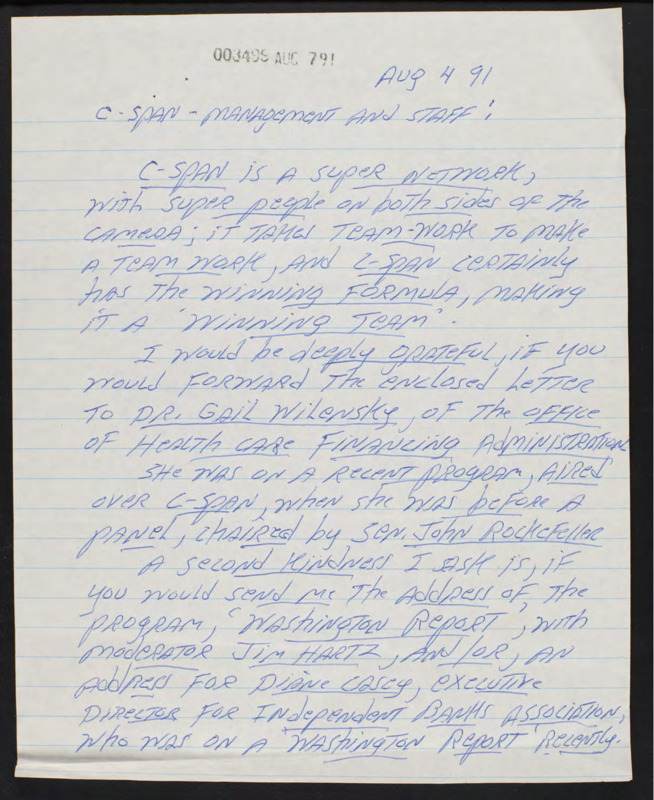 003499 AUG 7 91
Aug 4 91
C-SPAN - MANAgement AND STAFF!
C-SPAN is A super Network,
with super people on both sides of the
CAmeRA; iT TAKes TeAM-WORK To mAKe
A TeAm WORK, AND C-SPAN CeRTAiNly
hAs The Winning FORMULA, mAKing
iT A "Winning TeAm".
I would be deeply gRATeFul, iF you
would FORWARd The enclosed LeTTeR
To DR. GAil Wilensky, oF The oFFice
oF HeAlTh CARe FinANCing AdministRATion
She wAs on A Recent pRogRAm, AiRed
over C-SPAN, when she wAs beFoRe A
pANel, chAiRed by Sen. John RocKeFelleR
A second Kindness I Ask is, iF
you would send me The AddRess oF The
pRogRAm, "WAshington RepoRT", with
modeRAToR Jim HARTZ, And/oR, An
AddRess FoR DiAne CAsey, execuTive
DiRecToR FoR Independent BAnKs AssociATion,
who wAs on A "WAshington RepoRT Recently.